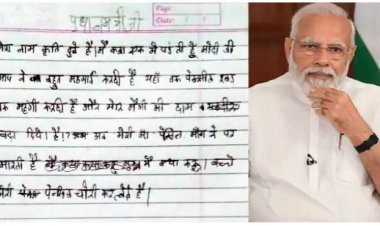 प्रधानमंत्री जी
Page
Date
मेरा नाम कृति दुबे है। मैं कक्षा एक में पढ़ती हूँ मोदी जी
आप ने बहुत महगाई करदी है यहाँ तक पेन्सील रबड़
तक महंगी करदी है और मेरी मैगी की दाम भी
बढ़ा दिये है। अब मेरी माँ पेन्सिल मांगने पर
मारती है मैं क्या करू। बच्चे
मेरी पेन्सिल चोरी कर लेते है।